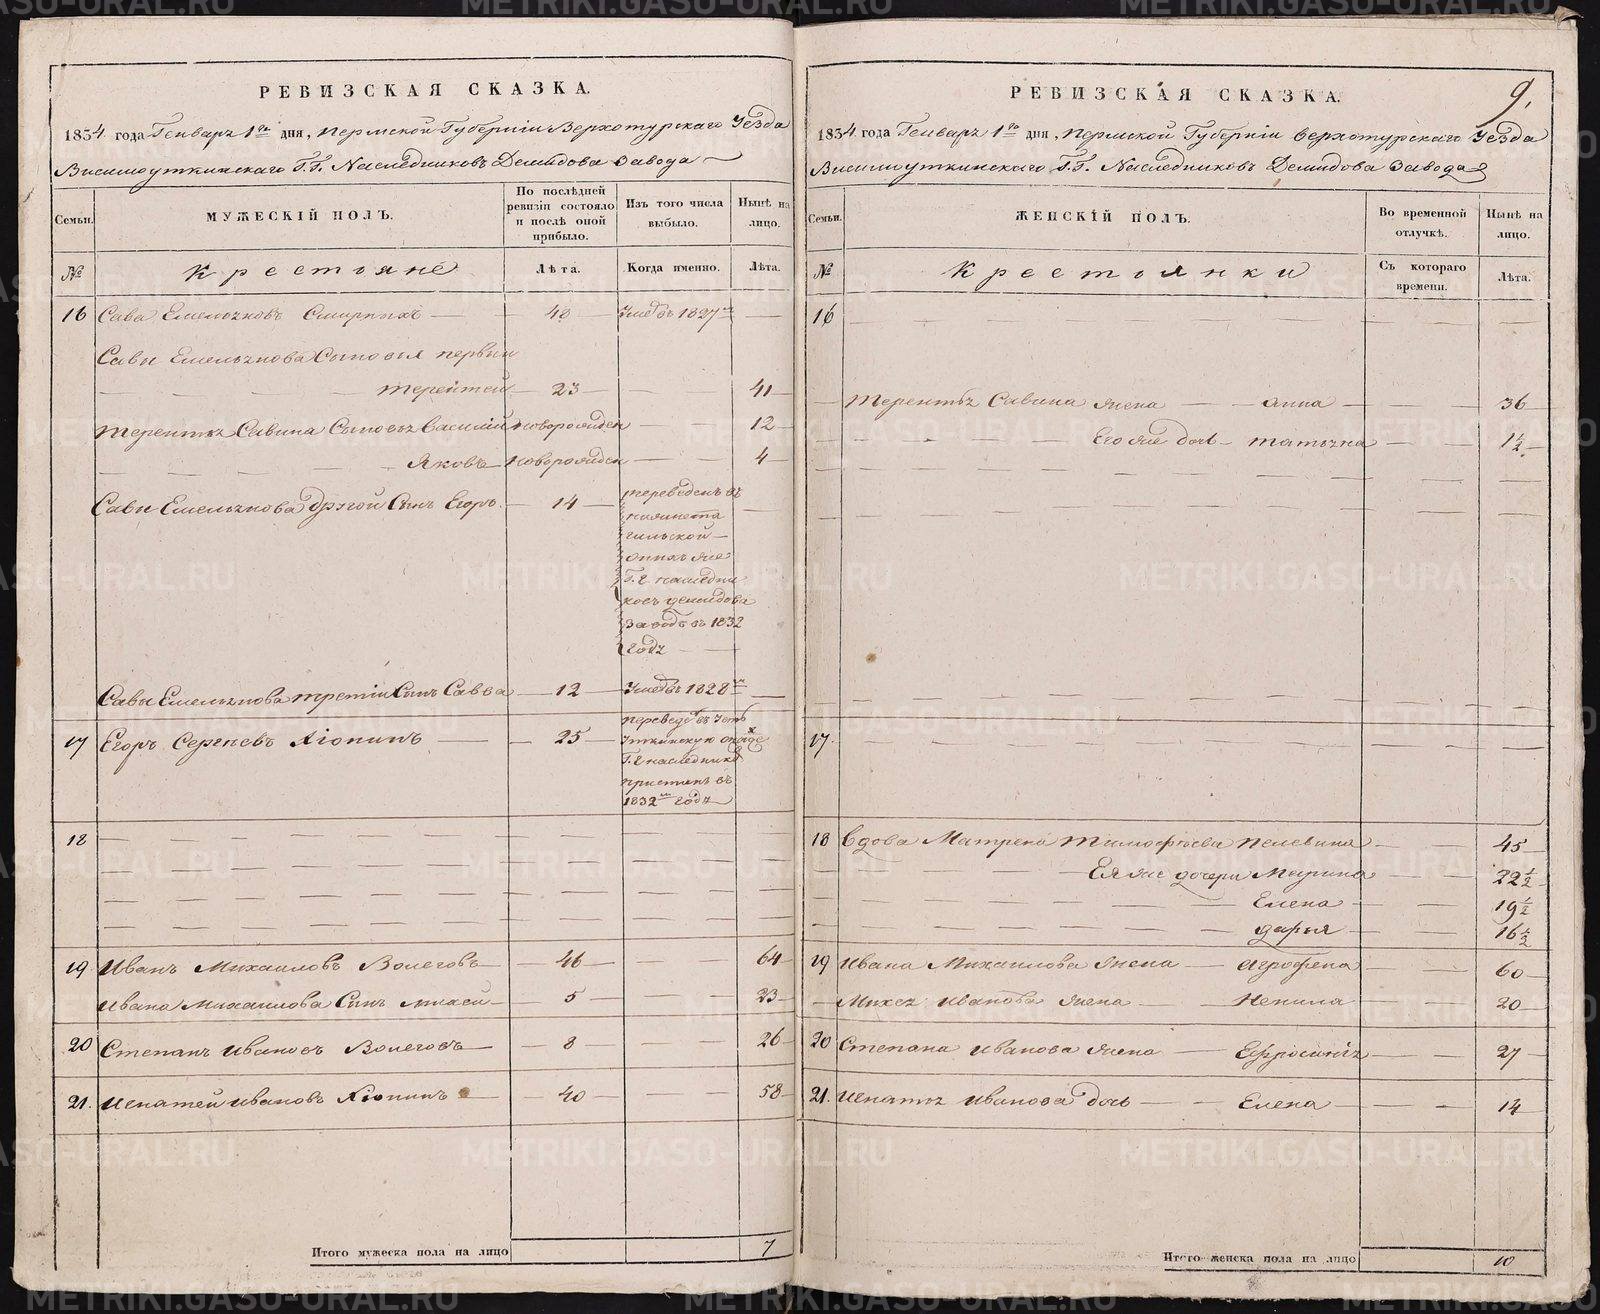 РЕВИЗСКАЯ СКАЗКА.
1834 года Генваря 1го дня, Пермской Губернiи Верхотурскаго Уезда
Висимоуткинскаго Г.Г. Наследниковъ Демидова Завода
Семьи.
МУЖЕСКІЙ ПОЛЪ.
По послѣдней ревизіи состояло и послѣ оной прибыло.
Изъ того числа выбыло.
Нынѣ на лицо.
№
Крестьяне
Лѣта.
Когда именно.
Лѣта.
16 Сава Емельяновъ Смирныхъ — 48 — Умеръ в 1827м —
Савы Емельянова Сыновья первый
Терентей — 23 — 41
Терентья Савина Сыновья Василий новорожден — 12
Яковъ — новорожден — 4
Савы Емельянова другой Сынъ Егоръ — 14 —
переведенъ въ
нижнета
гильской
онихъ же
Г.Г. наследни
ковъ демидова
Заводъ въ 1832
годе
Савы Емельянова третiй Сынъ Савва — 12 — Умеръ в 1828м —
17 Егоръ Сергеевъ Кіопинъ — 25 —
переведе въ Усть
Уткинскую онихже
Г.Г. наследнико
пристань въ
1832м годе
18
19 Иванъ Михаиловъ Волеговъ — 46 — 64
Ивана Михаилова Сынъ михей — 5 — 23
20 Степанъ Ивановъ Волеговъ — 8 — 26
21. Игнатей Ивановъ Кіопинъ — 40 — 58
Итого мужеска пола на лицо 7
9.
РЕВИЗСКАЯ СКАЗКА.
1834 года Генваря 1го дня, Пермской Губернiи Верхотурскаго Уезда
Висимоуткинскаго Г.Г. Наследниковъ Демидова Завода
Семьи.
ЖЕНСКІЙ ПОЛЪ.
Во временной отлучкѣ.
Нынѣ на лицо.
№
Крестьянки
Съ котораго времени.
Лѣта.
16
Терентья Савина жена — Анна — 36
Его же дочь — Татьяна — 1 1/2
17.
18 Вдова Матрена Тимофѣева Пелевина — 45
Ея же дочери Марина — 22 1/2
Елена — 19 1/2
Дарья — 16 1/2
19 Ивана Михаилова жена — Агрофена — 60
Михея Иванова жена — Ненила — 20
20 Степана Иванова жена — Ефросинья — 27
21. Игнатья Иванова дочь — Елена — 14
Итого женска пола на лицо 10
METRIKI.GASO-URAL.RU